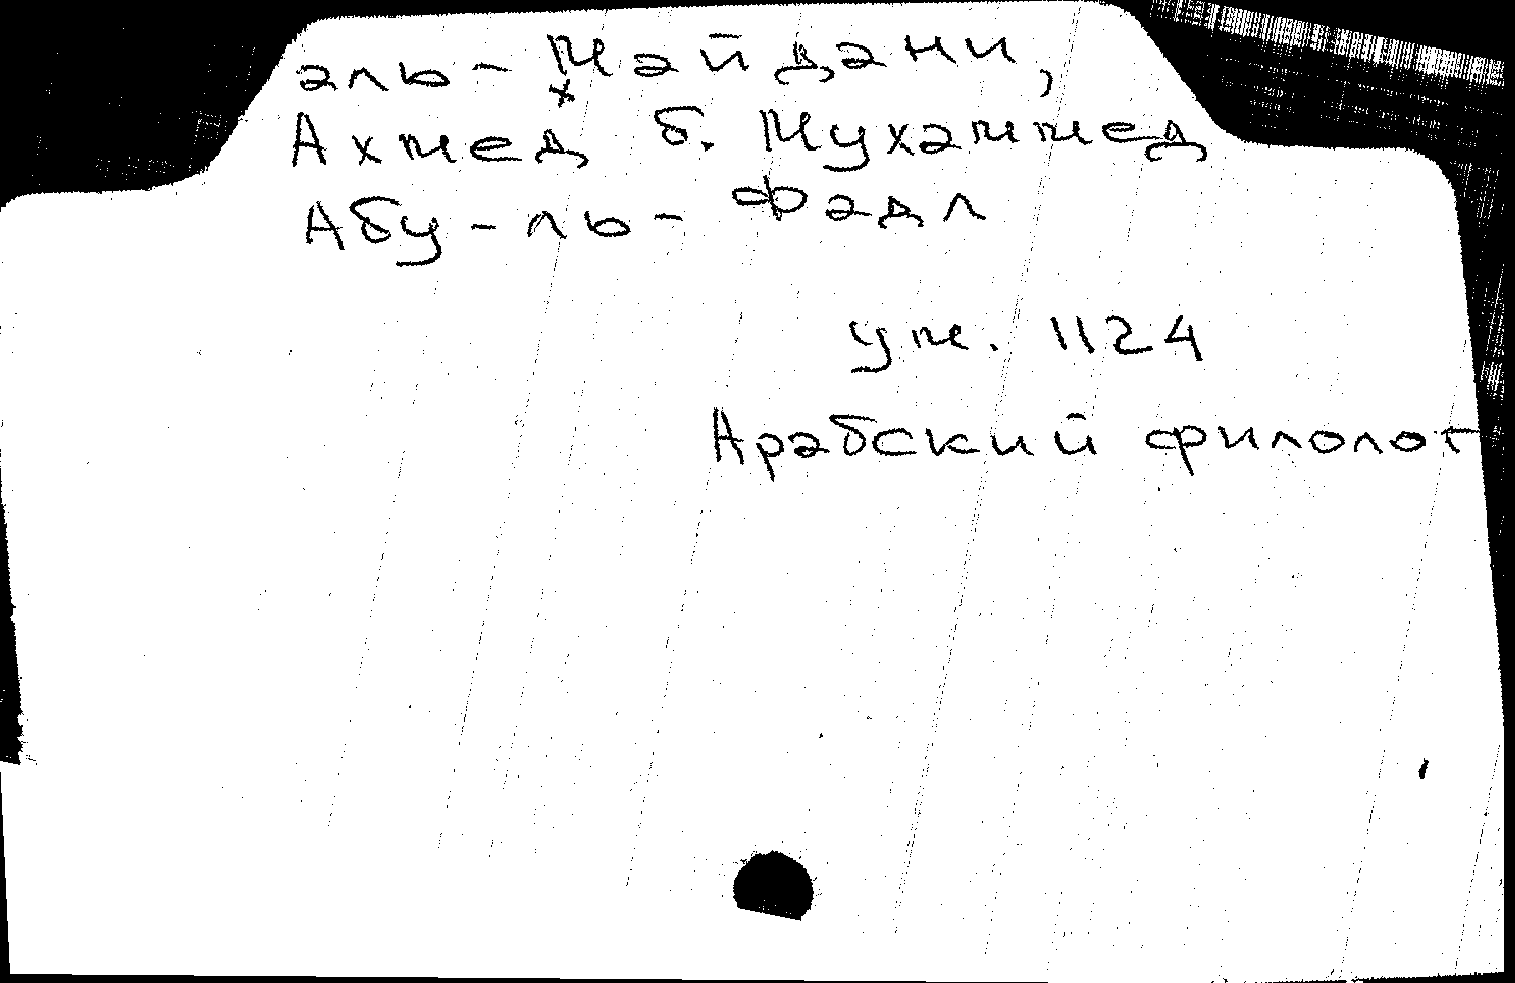 аль-Майдани,
Ахмед б. Мухаммед
Абу-ль-Фадл
ум. 1124
Арабский филолог